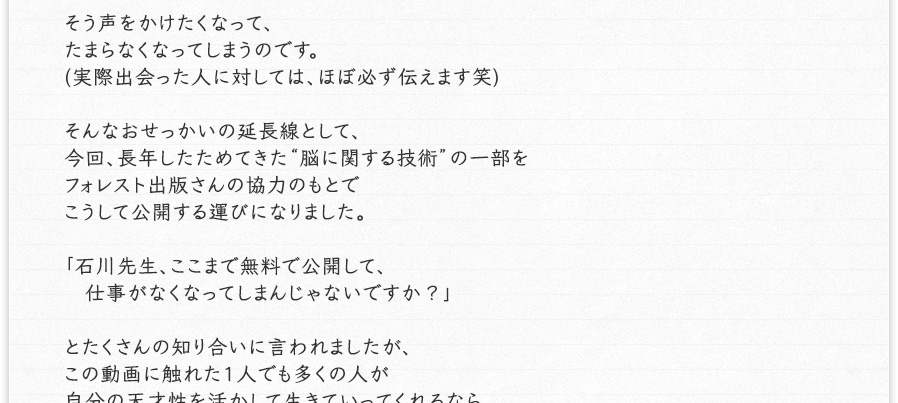 そう声をかけたくなって、
たまらなくなってしまうのです。
(実際出会った人に対しては、ほぼ必ず伝えます笑)
そんなおせっかいの延長線として、
今回、長年したためてきた“脳に関する技術”の一部を
フォレスト出版さんの協力のもとで
こうして公開する運びになりました。
「石川先生、ここまで無料で公開して、
仕事がなくなってしまんじゃないですか？」
とたくさんの知り合いに言われましたが、
この動画に触れた1人でも多くの人が
自分の天才性を活かして生きていってくれるなら